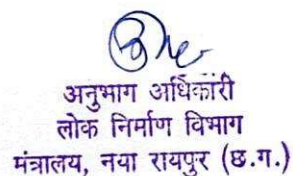 अनुभाग अधिकारी
लोक निर्माण विभाग
मंत्रालय, नया रायपुर (छ.ग.)